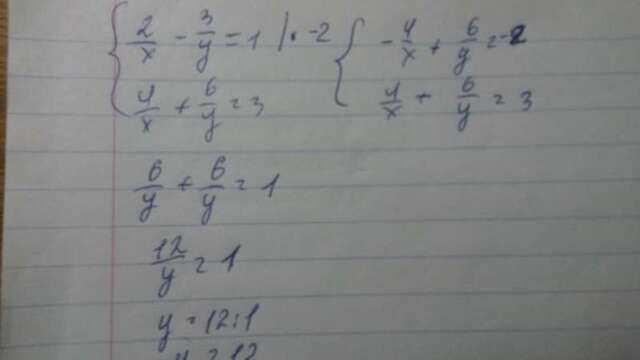 { 2/x - 3/y = 1 | · -2 { -4/x + 6/y = -2
4/x + 6/y = 3 4/x + 6/y = 3
6/y + 6/y = 1
12/y = 1
y = 12:1
y = 12